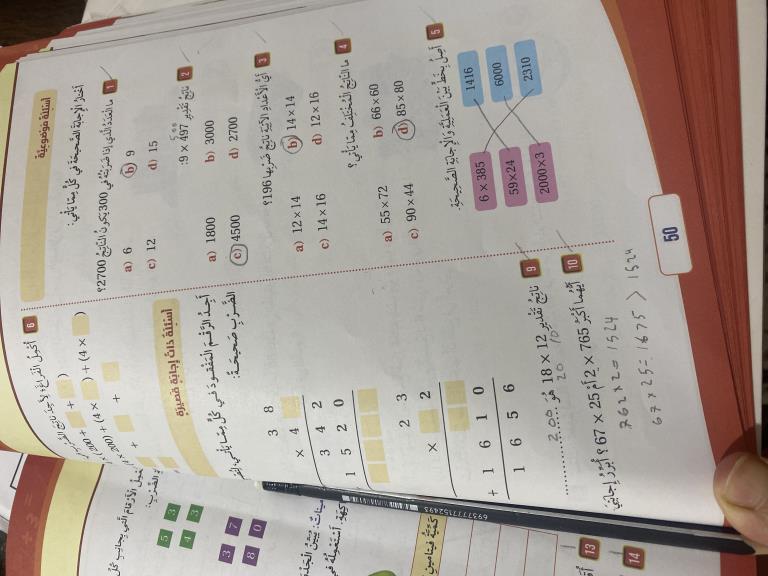 أسئلة موضوعية
أختار الإجابة الصحيحة في كل مما يأتي:
1 ما العدد الذي إذا ضربته في 300 يكون الناتج 2700؟
a) 6 b) 9
c) 12 d) 15
2 ناتج تقدير 497 × 9:
500
a) 1800 b) 3000
c) 4500 d) 2700
3 أي الأعداد الآتية ناتج ضربها 196؟
a) 12 × 14 b) 14 × 14
c) 14 × 16 d) 12 × 16
4 ما الناتج المختلف مما يأتي؟
a) 55 × 72 b) 66 × 60
c) 90 × 44 d) 85 × 80
5 أصل بخط بين العملية والإجابة الصحيحة.
6 × 385 1416
59×24 6000
2000×3 2310
6
(200 +
× 200) + (4 × ) + (4 × )
+ +
أسئلة ذات إجابة قصيرة
أجد الرقم المفقود في كل مما يأتي
الضرب صحيحة:
3 8
× 4
3 4 2
1 5 2 0
2 3
× 2
+ 1 6 1 0
1 6 5 6
9 ناتج تقدير 12 × 18 هو
200
20 10
10 أيهما أكبر 765 × 2 أم 25 × 67؟ أبرر إجابتي
762 × 2 = 1524
67 × 25 = 1675 > 1524
50
5 3
4 3
3 7
8 0
6937777152493
13
14